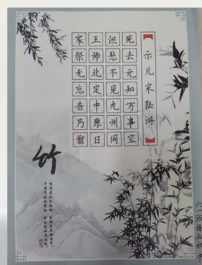 【示儿宋陆游】
死去元知万事空
但悲不见九州同
王师北定中原日
家祭无忘告乃翁
竹